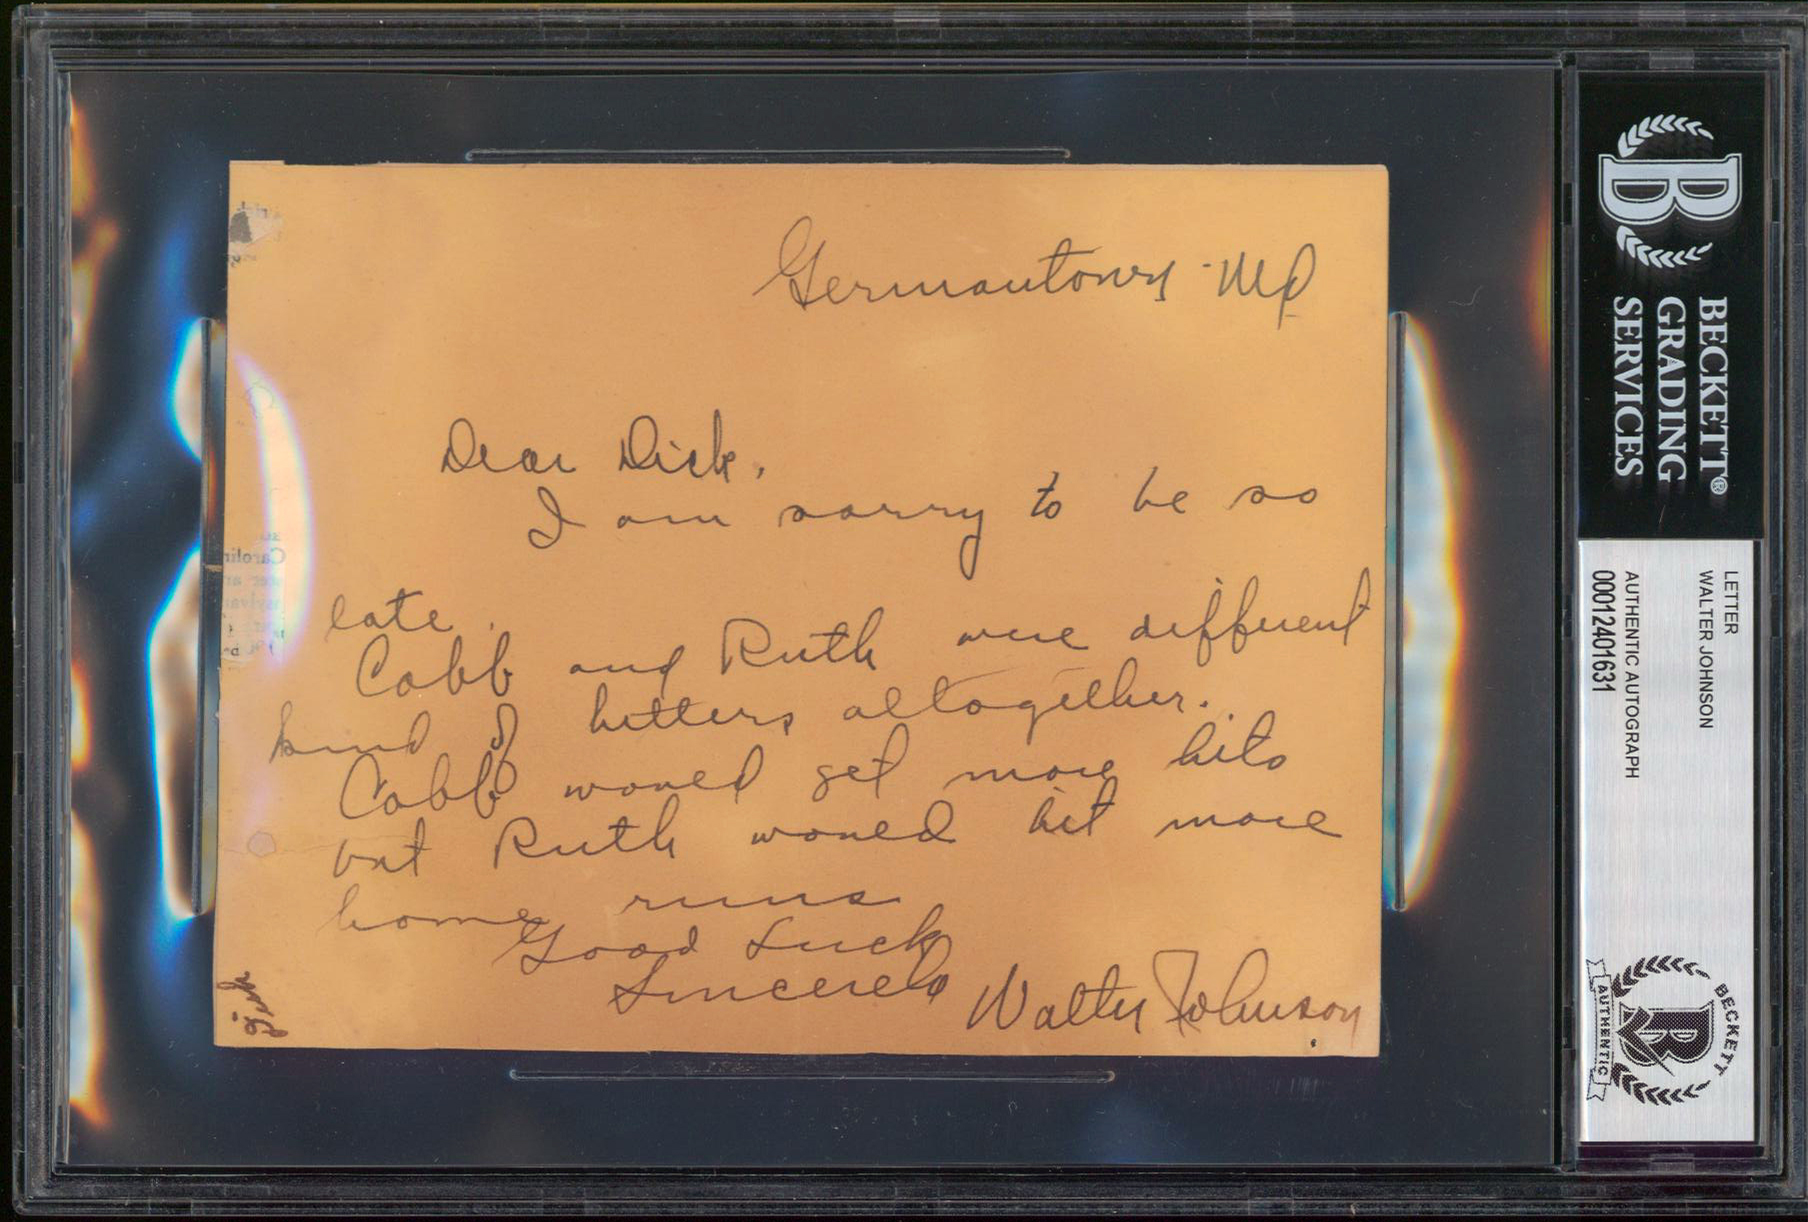 Germantown Md
Dear Dick,
I am sorry to be so
late.
Cobb and Ruth were different
kind of hitters altogether.
Cobb would get more hits
but Ruth would hit more
home runs
Good Luck
Sincerely Walter Johnson
BECKETT®
GRADING
SERVICES
LETTER
WALTER JOHNSON
AUTHENTIC AUTOGRAPH
00012401631
BECKETT
AUTHENTIC